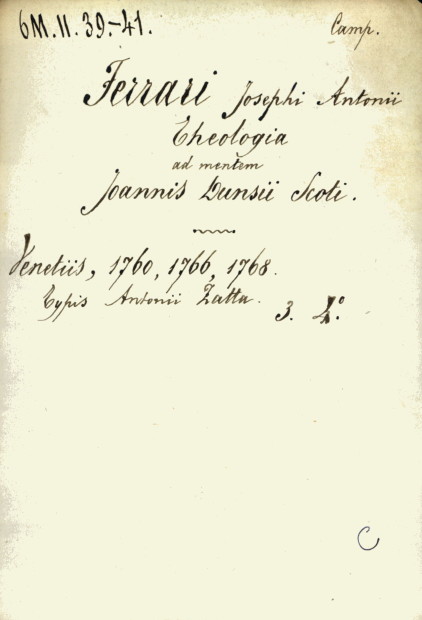 6M. II. 39.-41.
Camp.
Ferrari Josephi Antonii
Theologia
ad mentem
Joannis Dunsii Scoti.
Venetiis, 1760, 1766, 1768.
Typis Antonii Zatta.
3. 4.°
C